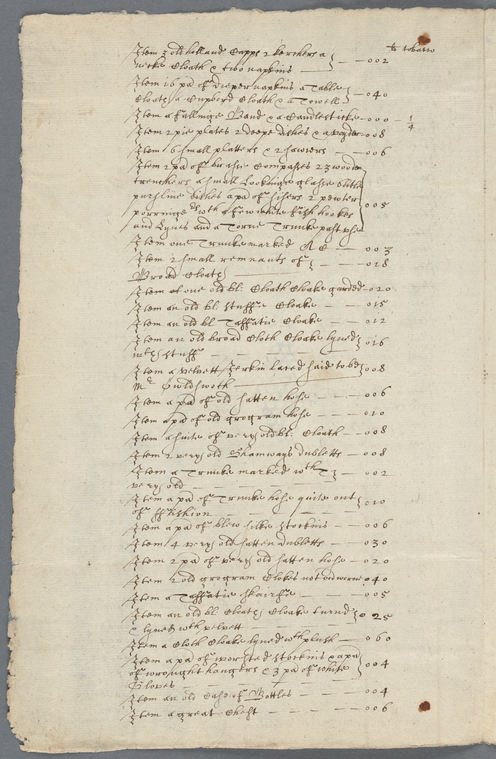 lb tobacco
Item 3 old holland Capps 2 kerchers a
Cloath & two napkins — 002
Item 16 pa of Dieper napkins a Table
Cloath, a Cupbord Cloath & a Towell — 040
Item a fallinge Band & a Candlesticke — 000 — 1/4
Item 2 pie plates 2 deepe dishes & a — 008
Item 6 small platters & 2 sawcers — 006
Item 2 pa of brasse Compasses 23 wooden
trenchers a small Lookeinge glasse 6 little
dishes a pa of sisers 2 pewter
porringers wth a few white fish hookes 005
and Lynes and a Torne Trunke past use
Item one Trunke marked R C — 003
Item 2 small remnants of
Broad Cloath — 018
Item one old bl: Cloath Cloake garded — 020
Item an old bl stuffe Cloake — 015
Item an old bl Taffatie Cloake — 012
Item an old broad Cloth Cloake lyned
wth stuffe — 016
Item a velvett Jerkin laced said to be
Mr Gouldsworth — 008
Item a pa of old satten hose — 006
Item a pa of old grogram hose — 010
Item a suite of very old bl: Cloath — 008
Item 2 very old Shamways dubletts — 008
Item a Trunke marked wth T
very old — 002
Item a pa of Trunke hose quite out
of ffashion — 010
Item a pa of blew silke stockins — 006
Item 4 very old satten dubletts — 030
Item 2 pa of very old satten hose — 020
Item 2 old grogram Clokes not — 040
Item a Taffatie skairfe — 005
Item an old bl Cloath Cloake turnd
& lyned wth velvett 025
Item a Cloth Cloake lyned wth plush — 060
Item a pa of worsted stockins a pa
of wrought hangers & 3 pa of white 004
Gloves
Item an old Case of Bottles — 004
Item a great Chest — 006